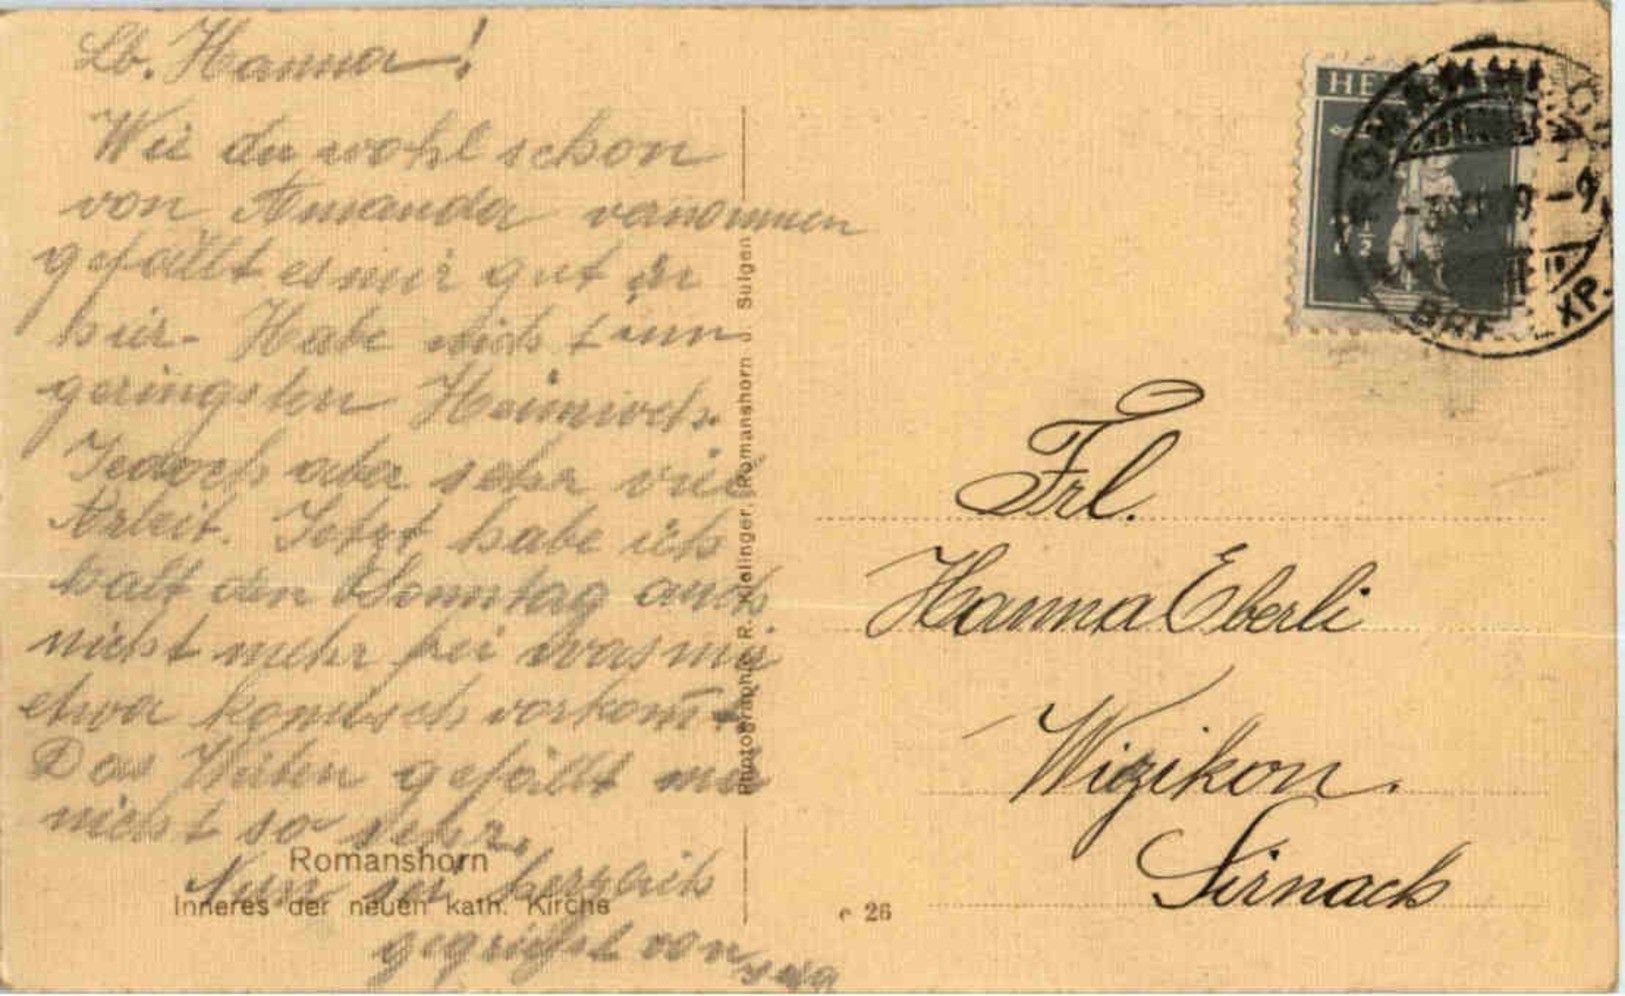 Lb. Hanna!
Wie du wohl schon
von Amanda vernommen
gefällt es mir gut
hier. Habe nicht
geringsten Heimweh.
Jedoch aber sehr viel
Arbeit. Jetzt habe ich
halt den Sonntag auch
nicht mehr frei was mir
etwa komisch vorkommt
Das gefällt mir
nicht so sehr.
Nun sei herzlich
gegrüsst von
Romanshorn
Inneres der neuen kath. Kirche
Photographie R. Romanshorn u. Sulgen
e 26
HE
ROMANSHORN
-9
BRF. EXP.
Frl.
Hanna Eberli
Wizikon.
Sirnach